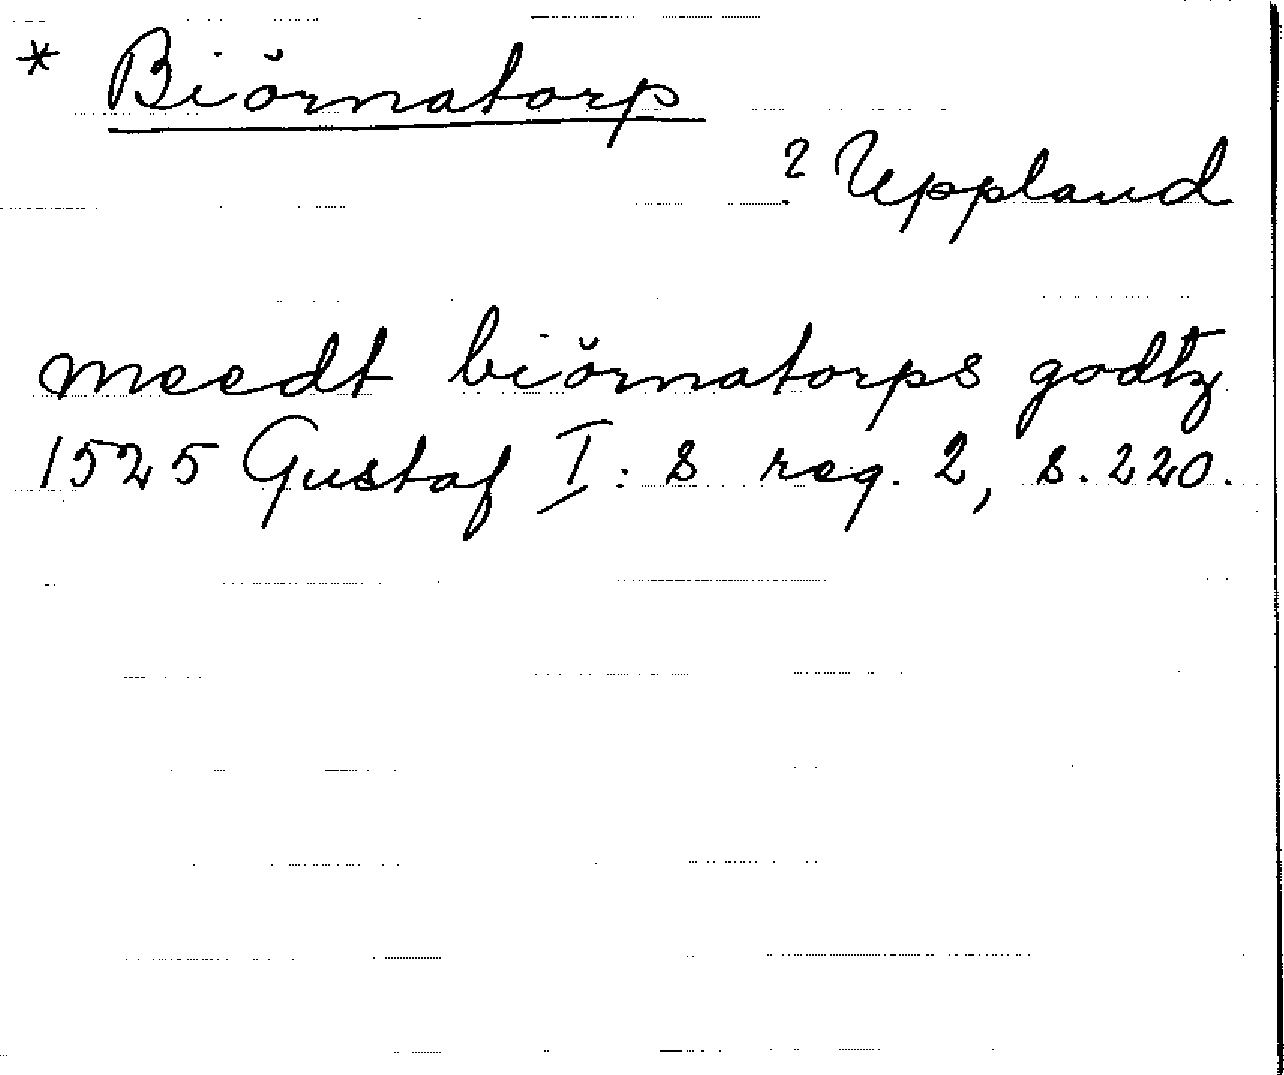 * Biörnatorp
? Uppland
meedt biörnatorps godtz
1525 Gustaf I:s reg. 2, s. 220.